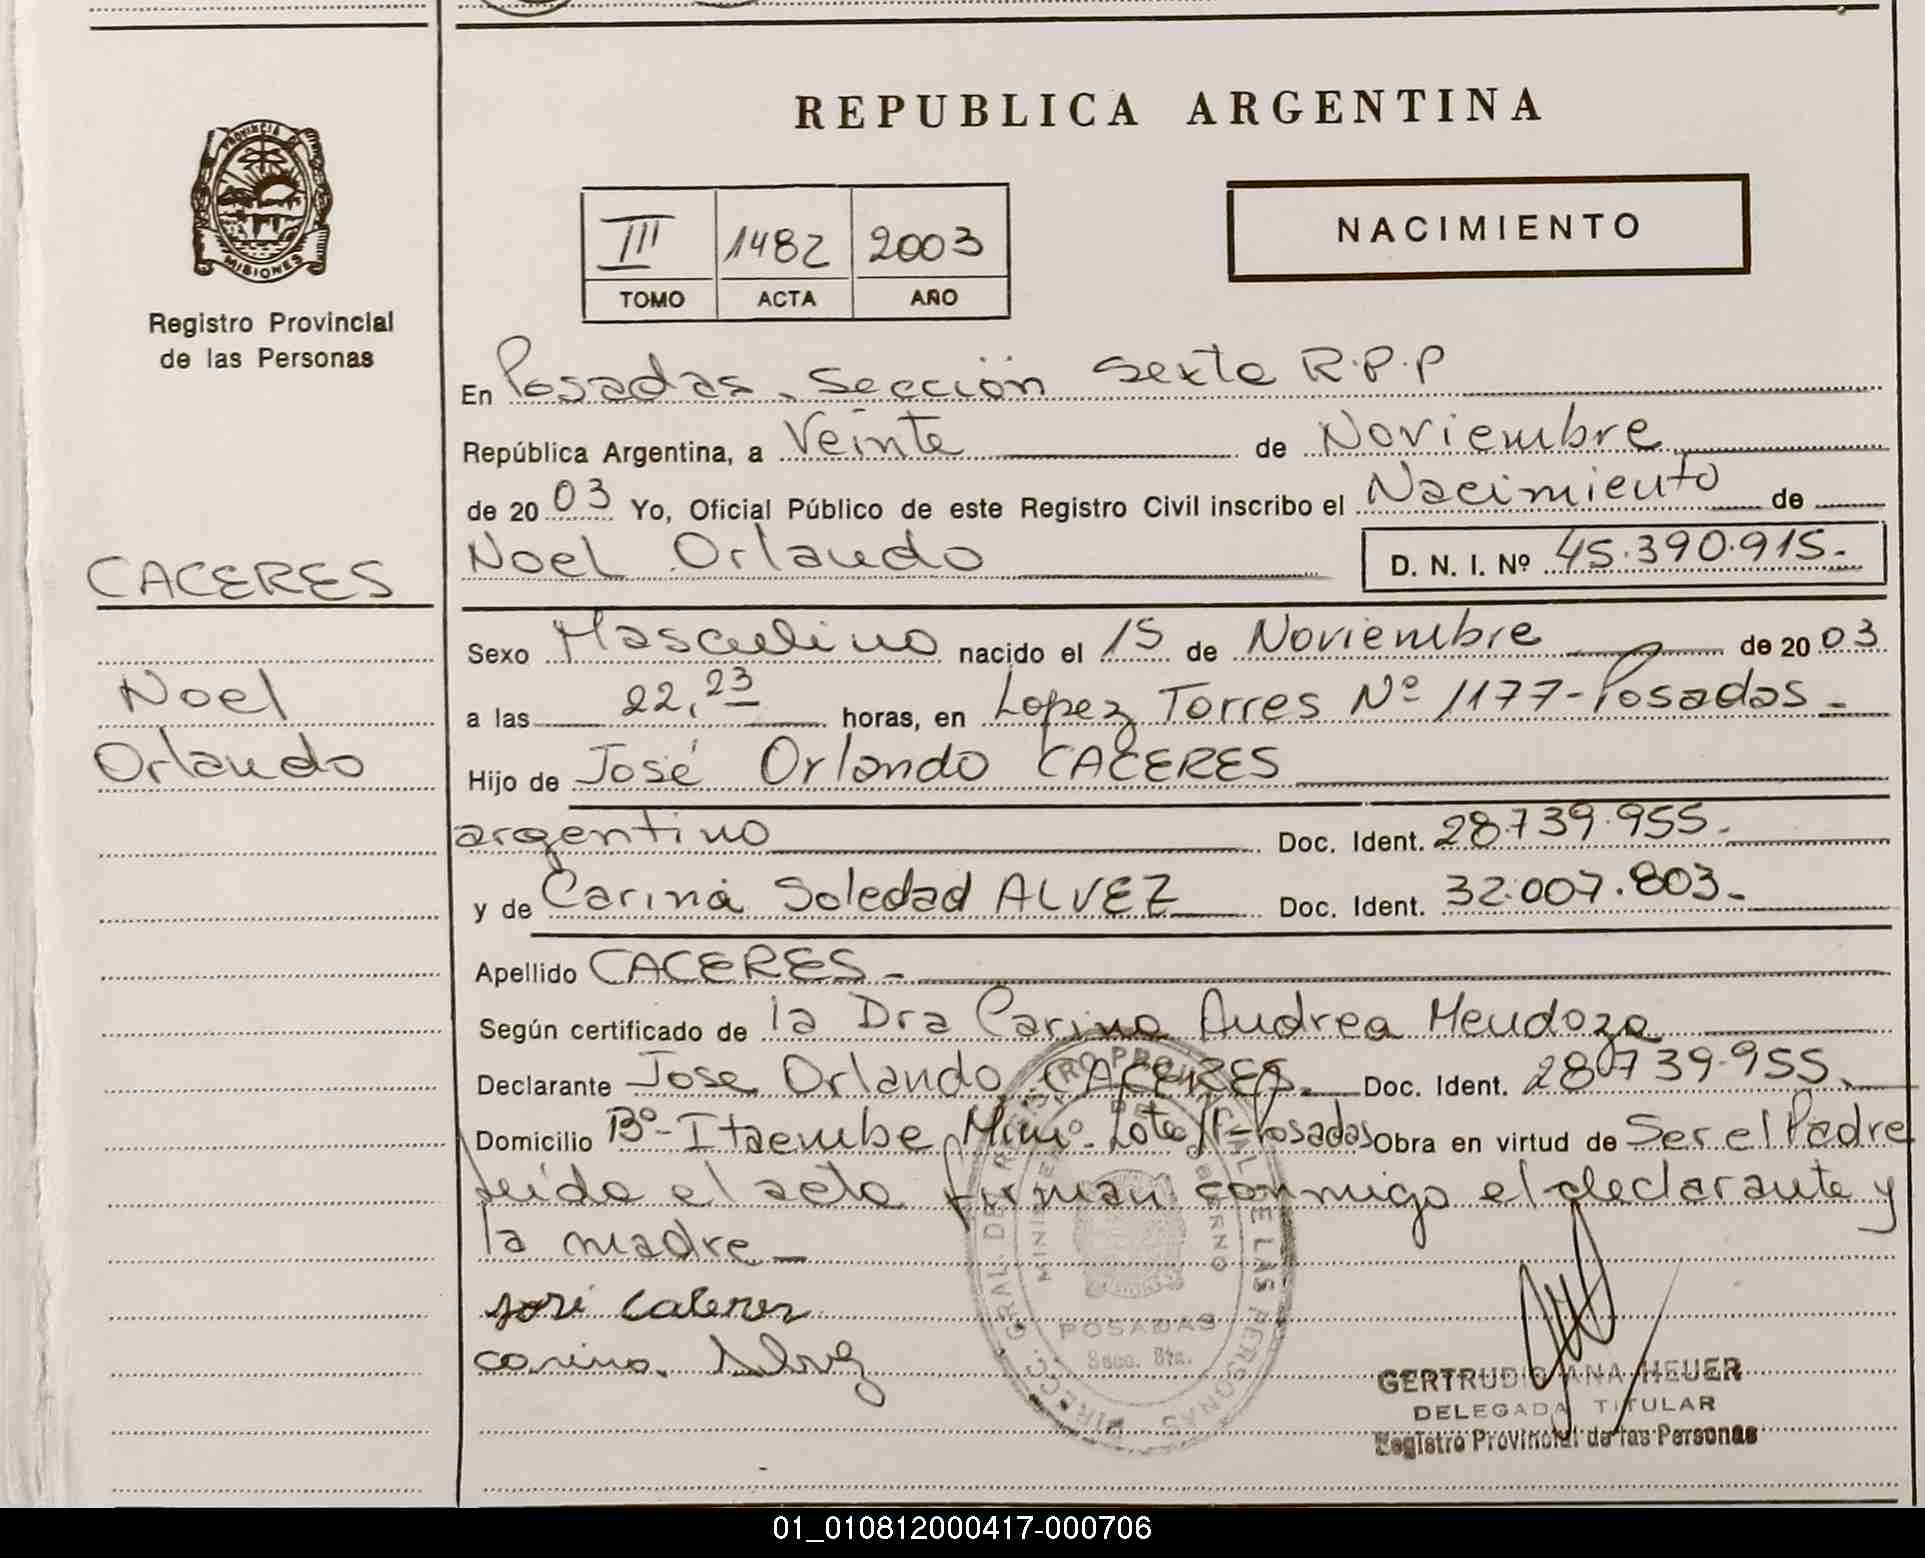 REPUBLICA ARGENTINA
PROVINCIA DE
MISIONES
Registro Provincial
de las Personas
III 1482 2003
TOMO ACTA AÑO
NACIMIENTO
En Posadas, Sección Sexta R.P.P
República Argentina, a Veinte de Noviembre
de 20 03 Yo, Oficial Público de este Registro Civil inscribo el Nacimiento de
Noel Orlando D. N. I. Nº 45.390.915.-
CACERES
Noel
Orlando
Sexo Masculino nacido el 15 de Noviembre de 20 03
a las 22,23 horas, en Lopez Torres Nº 1177-Posadas.-
Hijo de José Orlando CACERES
argentino Doc. Ident. 28.739.955.-
y de Carina Soledad ALVEZ Doc. Ident. 32.007.803.-
Apellido CACERES.-
Según certificado de la Dra Carina Andrea Mendoza
Declarante Jose Orlando CACERES.- Doc. Ident. 28.739.955.
Domicilio Bº-Itaembe Mini- Lote Posadas Obra en virtud de Ser el Padre
Leida el acta firman conmigo el declarante y
la madre-
José Caceres
carina Alvez
DIRECC. GRAL DE REGISTRO PROVINCIAL DE LAS PERSONAS
MINISTERIO DE GOBIERNO
POSADAS
Secc. 6ta.
GERTRUDIS ANA HEUER
DELEGADA TITULAR
Registro Provincial de las Personas
01_010812000417-000706